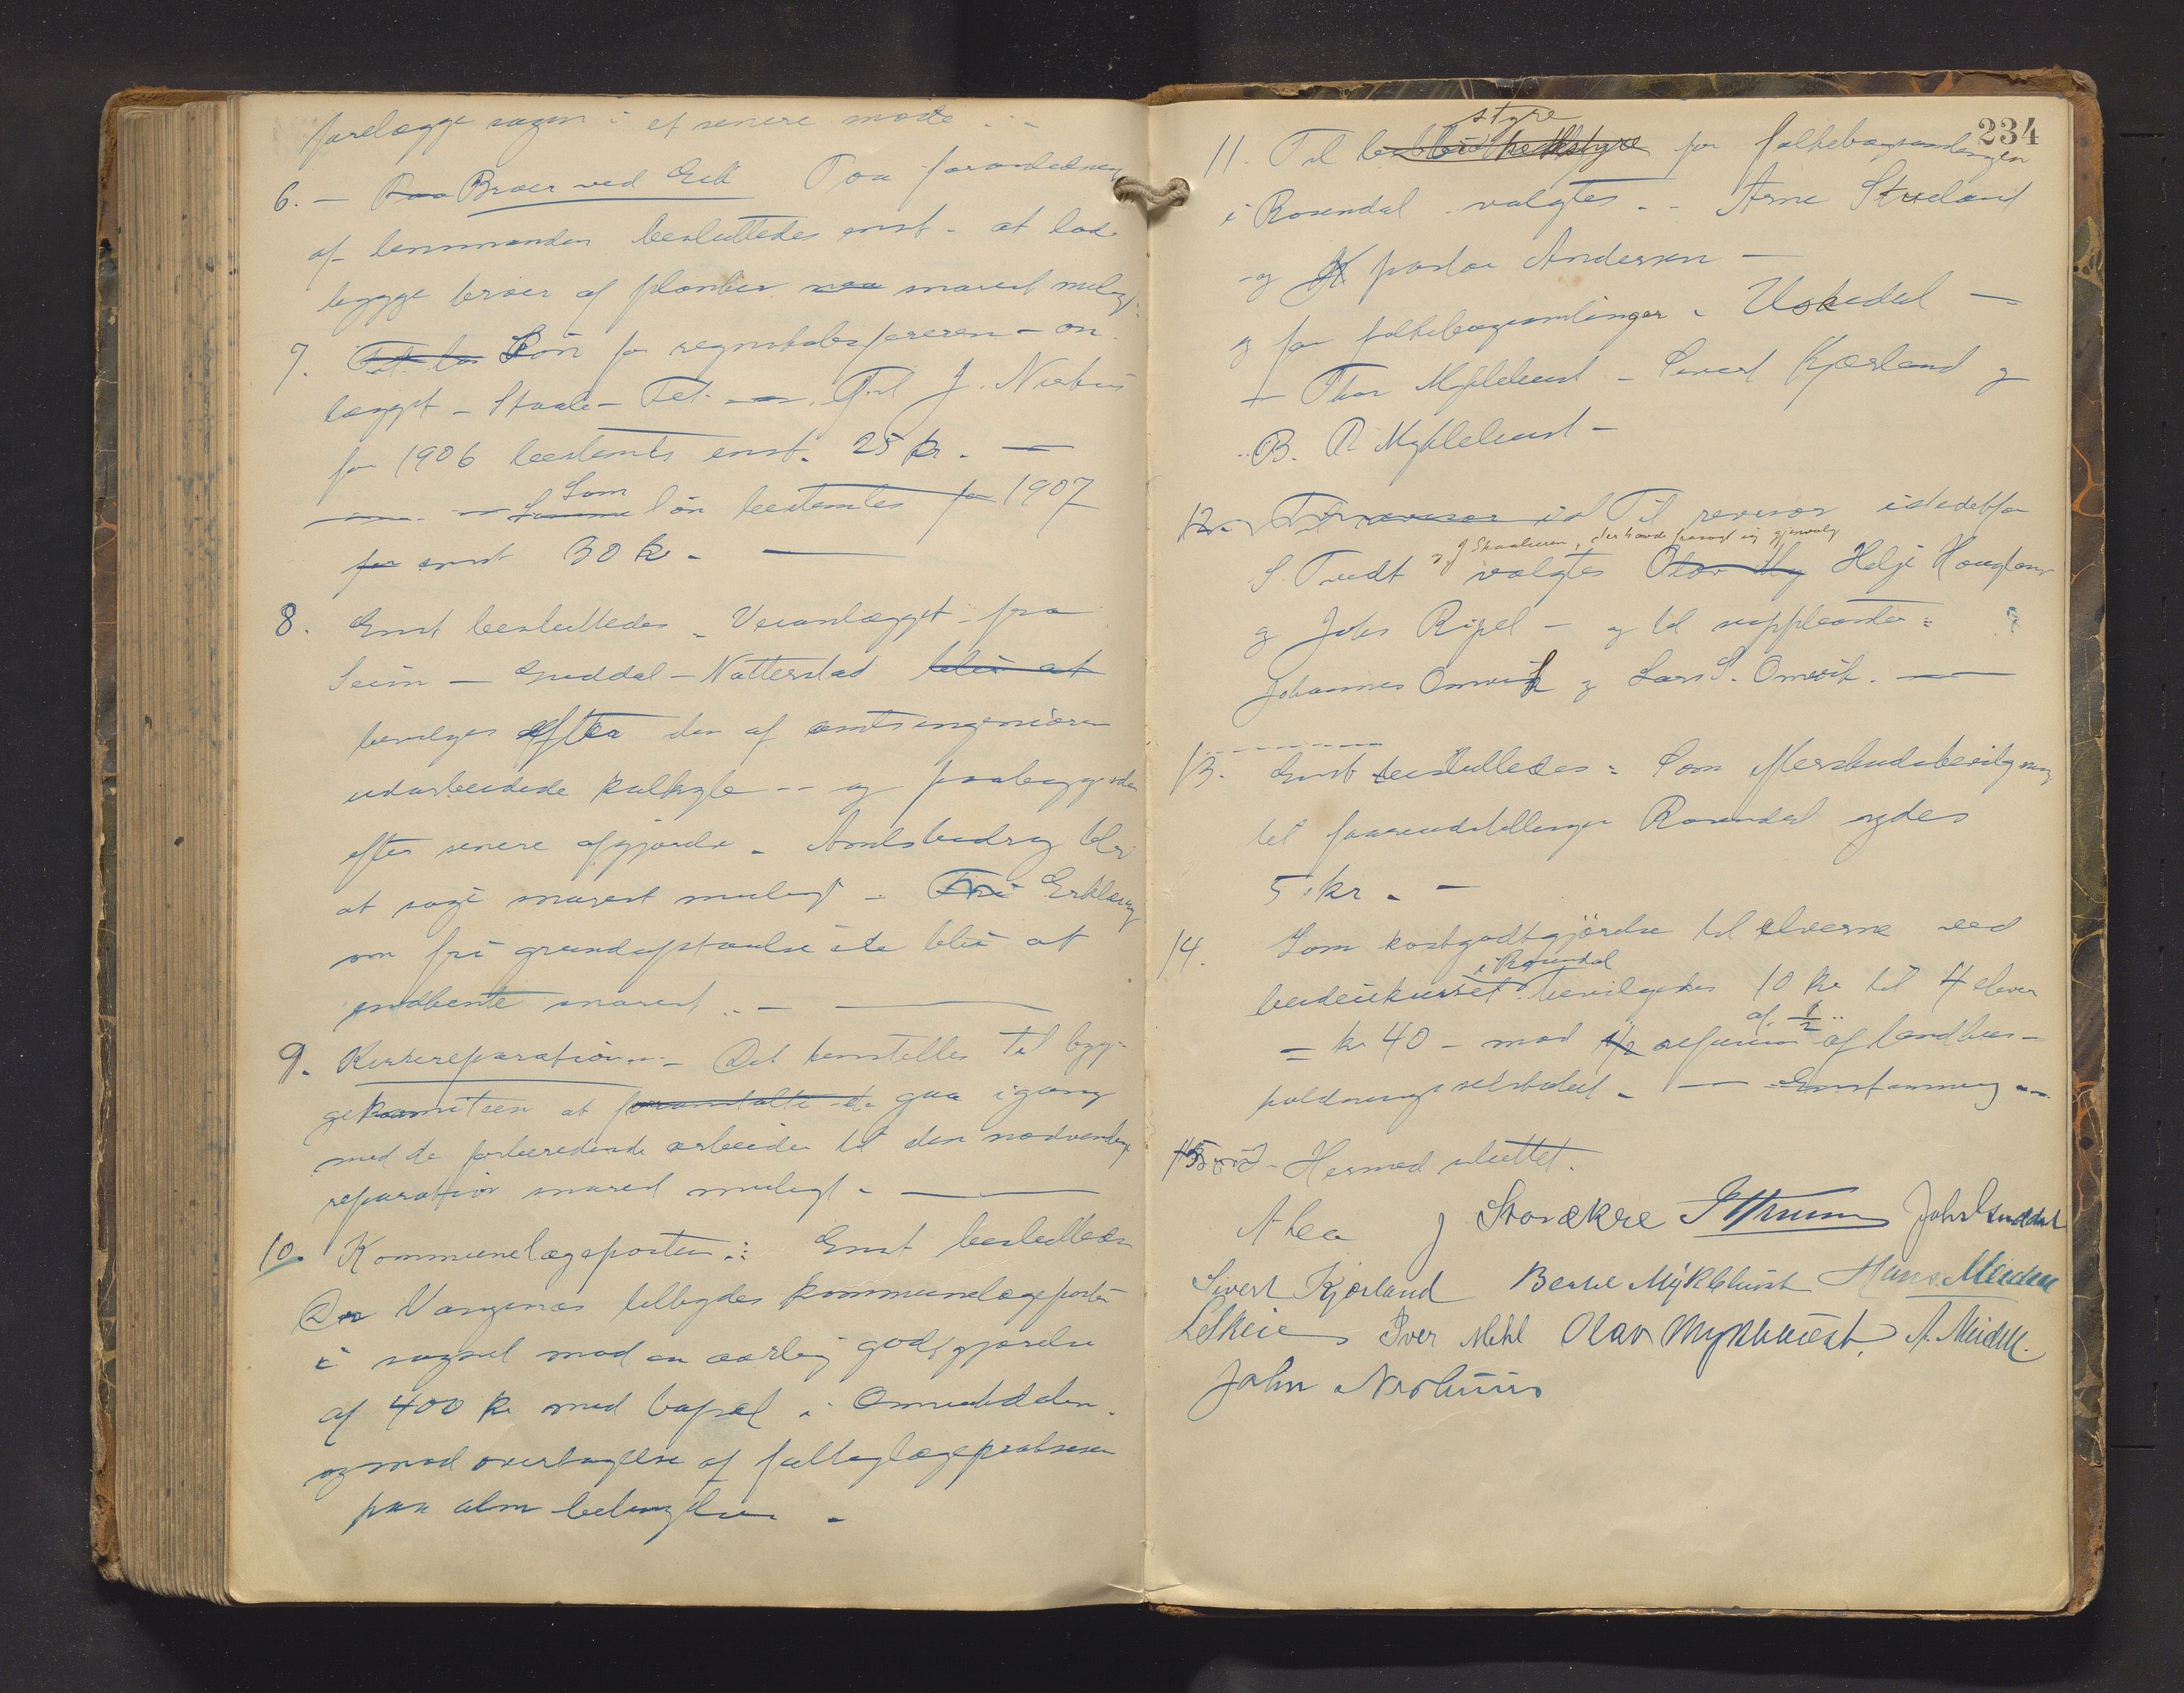 forelægge sagen i et senere møde . –
6. – Paa Broer ved Eik Paa foranledning
af lensmanden besluttedes enst. at lade
bygge broer af planker naa snarest muligt.
7. Til løn Løn for regnskabsføreren – an
lægget – Staale – Fet. Til J. Nerhus
for 1906 bestemtes enst. 25 kr. –
Som
Samme løn bestemtes for 1907
for enst 30 kr. –
8. Enst besluttedes – Veianlægget fra
Seim – Guddal – Natterstad blir at
bevilges efter den af amtsingeniøren
udarbeidede kalkyle – og paabegyndes
efter senere afgjørelse – Amtsbidrag blir
at søge snarest muligt – Fri Erklæring
om fri grundafstaaelse etc blir at
indhente snarest . –
9. Kirkereparation. – Det henstilles til byg-
gekomiteen at foranstalte de gaa igang
med de forberedende arbeider til den nødvendige
reparation snarest muligt –
10. Kommunelægeposten : Enst besluttedes
Dr Vangsnes tilbydes kommunelægeposten
i sognet mod en aarlig godtgjørelse
af 400 kr med bopæl i Omvikdalen
og mod overtagelse af fattiglægepraksisen
paa alm betingelser –
234
styre
11. Til bibliothekstyre for folkebogsamlingen
i Rosendal valgtes – Arne Skeeland
og K pastor Andersen –
og for folkebogsamlingen i Uskedal –
– Thor Myklebust – Sivert Kjærland og
B. O. Myklebust –
12. – Til revisor ist Til revisor istedetfor
og J Skaaluren, der havde frasagt sig gjenvalg
S. Tvedt valgtes Olav My Helje Haugland
og Johs Ripel – og til suppleanter :
Johannes Omvik og Lars S. Omvik. –
13. Enst besluttedes : Som Merskudsbevilgning
til faareudstillingen Rosendal ydes
5 kr. –
14. Som kostgodtgjørelse til elverne ved
i Rosendal
beidekurset bevilgedes 10 kr til 4 elever
af ½
= kr 40 – mod 1/2 refusion af landhus-
holdningsselskabet – – Enstemmig –
15 – Hermed sluttet.
A Lea J Storækre John Guddal
Sivert Kjærland Berthe Myklebust Hans Meidell
L Skeie Iver Mehl Olav Myklebust, A. Meidell.
John Nerhuus